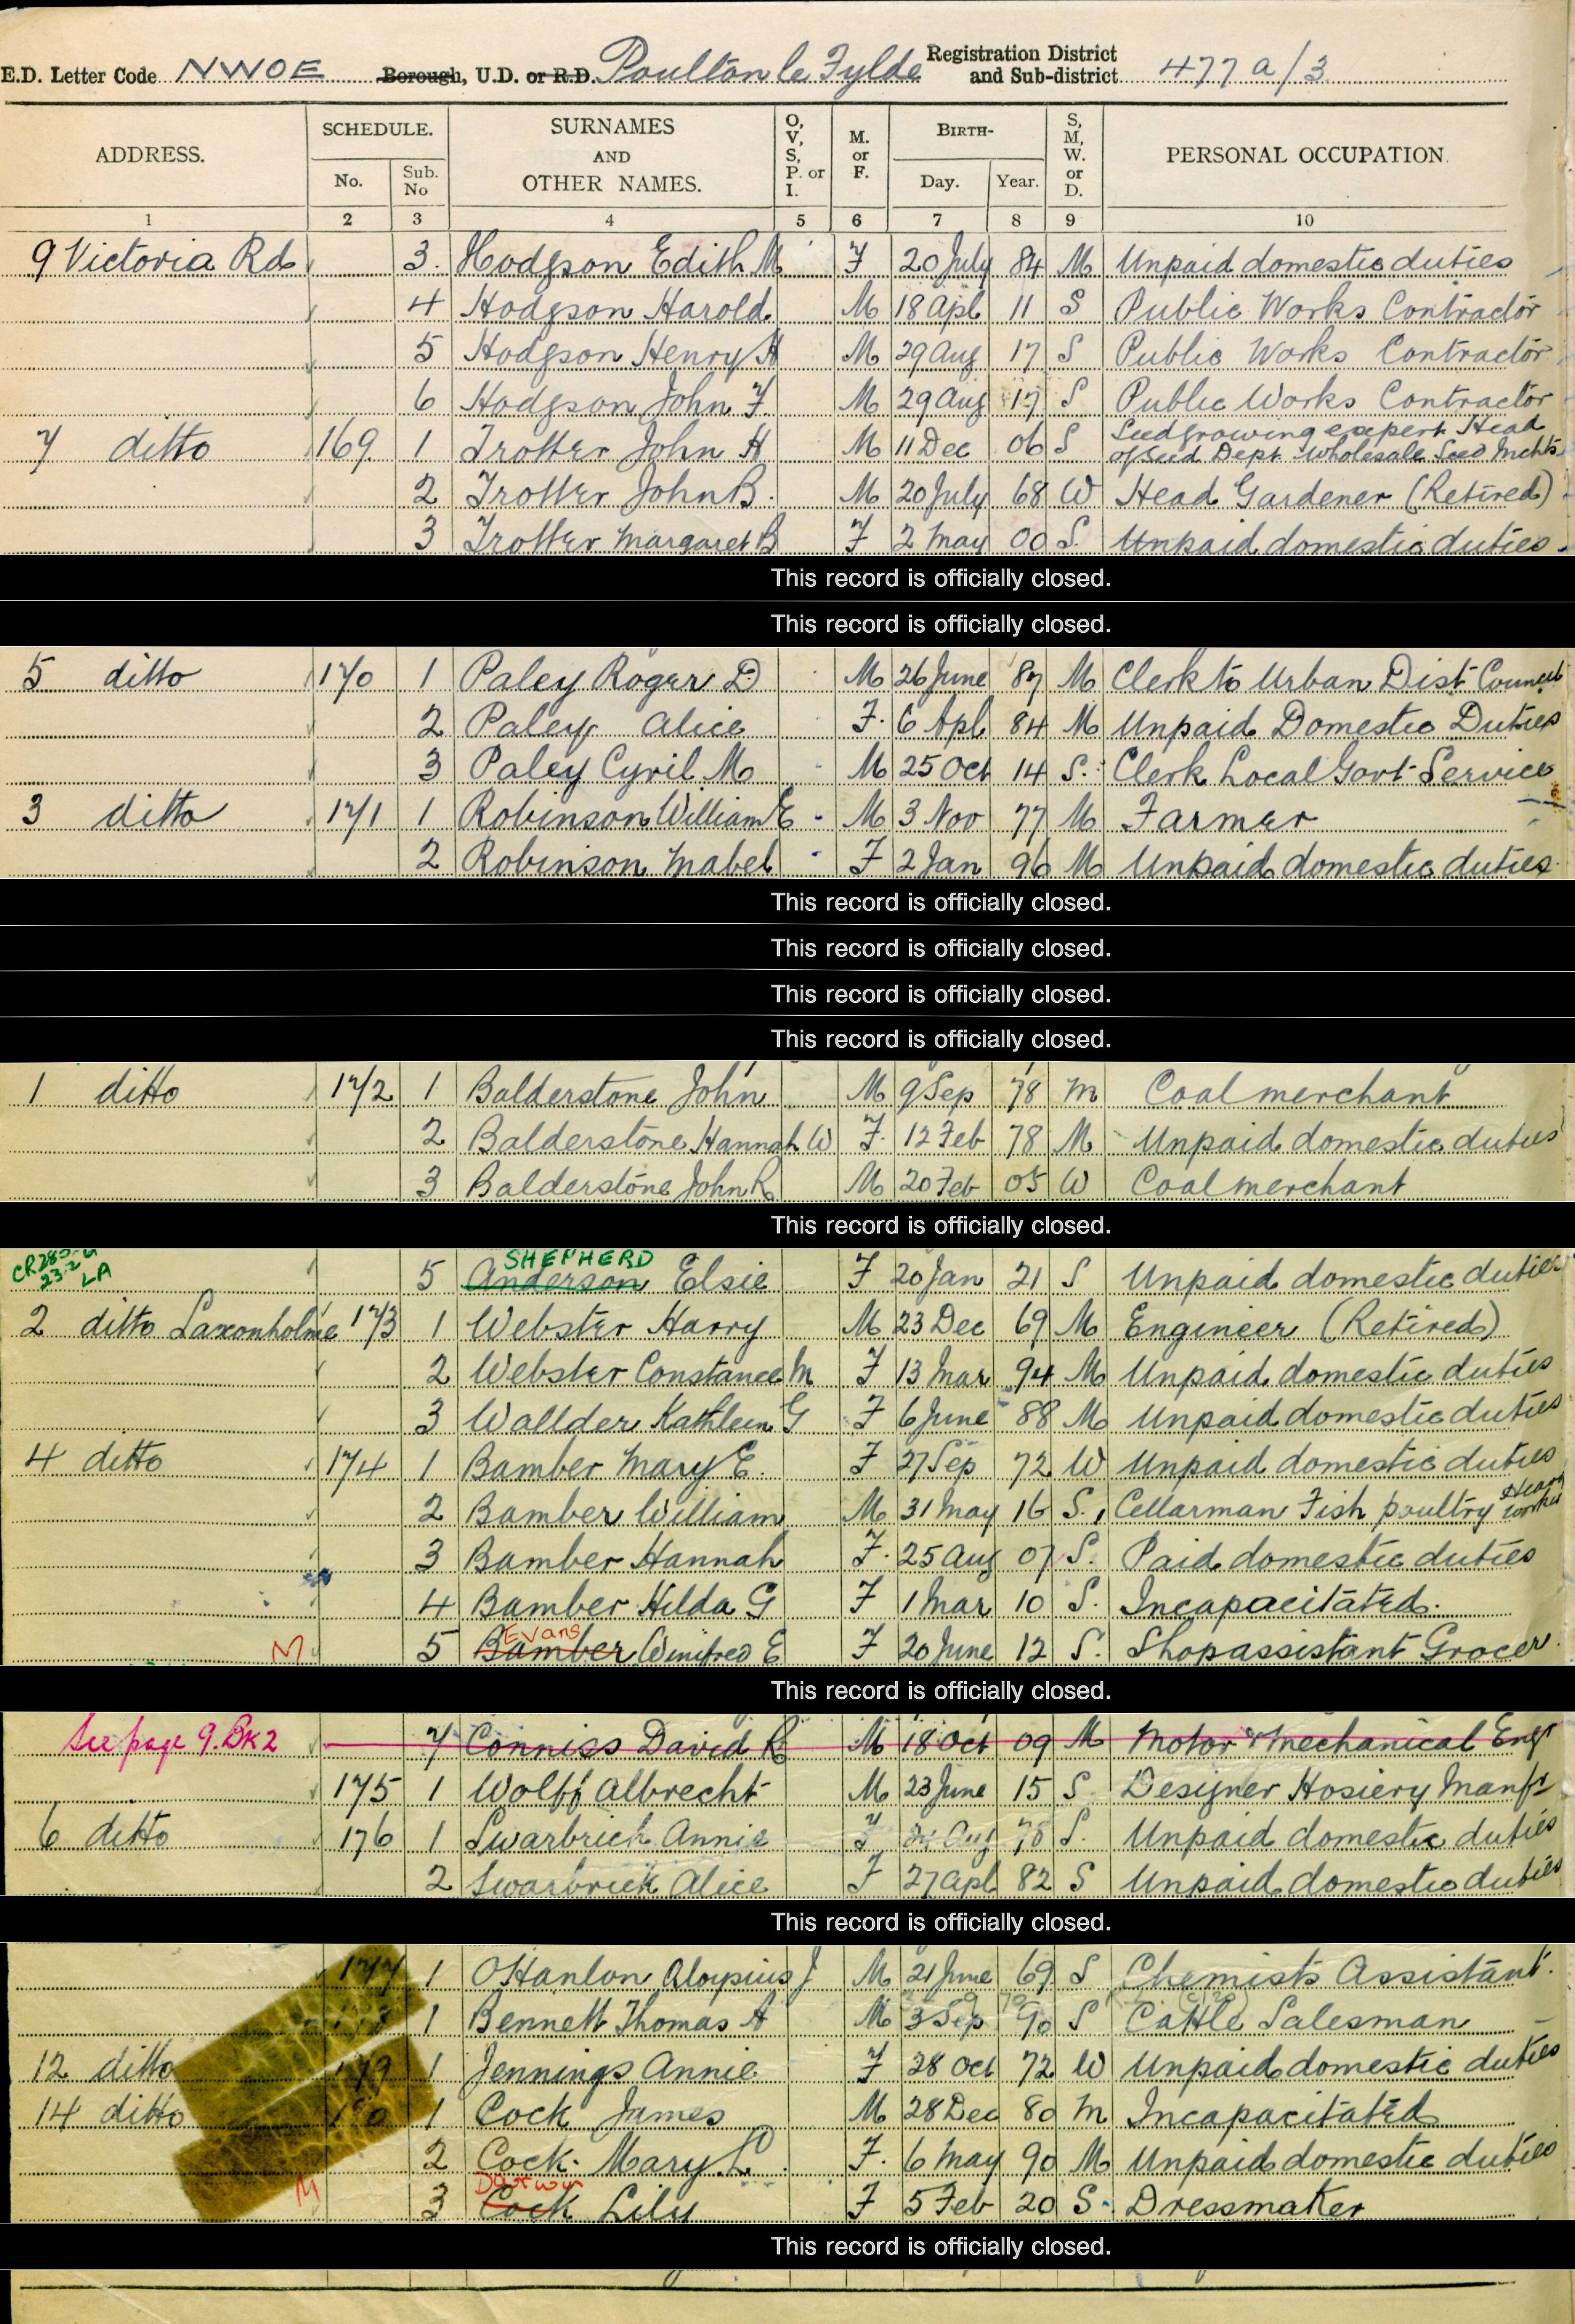 E.D. Letter Code NWOE Borough, U.D. or R.D. Poulton le Fylde Registration District and Sub-district 477a/3
ADDRESS. SCHEDULE. No. Sub. No SURNAMES AND OTHER NAMES. O, V, S, P. or I. M. or F. BIRTH- Day. Year. S, M, W. or D. PERSONAL OCCUPATION.
1 2 3 4 5 6 7 8 9 10
9 Victoria Rd 3. Hodgson Edith M F 20 July 84 M Unpaid domestic duties
4 Hodgson Harold M 18 Apl 11 S Public Works Contractor
5 Hodgson Henry H M 29 Aug 17 S Public Works Contractor
6 Hodgson John F M 29 Aug 17 S Public Works Contractor
7 ditto 169 1 Trotter John H M 11 Dec 06 S Seedgrowing expert Head of Seed Dept Wholesale Seed Mchts
2 Trotter John B. M 20 July 68 W Head Gardener (Retired)
3 Trotter Margaret B F 2 May 00 S. Unpaid domestic duties
This record is officially closed.
This record is officially closed.
5 ditto 170 1 Paley Roger D M 26 June 87 M Clerk to Urban Dist Council
2 Paley Alice F. 6 Apl 84 M Unpaid Domestic Duties
3 Paley Cyril M M 25 Oct 14 S. Clerk Local Govt Service
3 ditto 171 1 Robinson William E M 3 Nov 77 M Farmer
2 Robinson Mabel F 2 Jan 96 M Unpaid domestic duties
This record is officially closed.
This record is officially closed.
This record is officially closed.
This record is officially closed.
1 ditto 172 1 Balderstone John M 9 Sep 78 M Coal merchant
2 Balderstone Hannah W F. 12 Feb 78 M Unpaid domestic duties
3 Balderstone John R M 20 Feb 05 W Coal merchant
This record is officially closed.
SHEPHERD
LA 5 Anderson Elsie F 20 Jan 21 S Unpaid domestic duties
2 ditto Saxonholme 173 1 Webster Harry M 23 Dec 69 M Engineer (Retired)
2 Webster Constance M F 13 Mar 94 M Unpaid domestic duties
3 Wallder Kathleen G F 6 June 88 M Unpaid domestic duties
4 ditto 174 1 Bamber Mary E. F 27 Sep 72 W Unpaid domestic duties
2 Bamber William M 31 May 16 S. Cellarman Fish poultry Heavy worker
3 Bamber Hannah F. 25 Aug 07 S. Paid domestic duties
4 Bamber Hilda G F 1 Mar 10 S. Incapacitated.
Evans
M 5 Bamber Winifred E F 20 June 12 S. Shop assistant Grocer
This record is officially closed.
See page 9. BK2 7 Conniss David R M 18 Oct 09 M Motor & Mechanical Engr
175 1 Wolff Albrecht M 23 June 15 S Designer Hosiery Manfr
6 ditto 176 1 Swarbrick Annie F Aug 78 S. Unpaid domestic duties
2 Swarbrick Alice F 27 Apl 82 S Unpaid domestic duties
This record is officially closed.
177 1 O'Hanlon Aloysius J M 21 June 69 S Chemists Assistant.
1 Bennett Thomas A M 3 Sep 90 S Cattle Salesman
12 ditto 179 1 Jennings Annie F 28 Oct 72 W Unpaid domestic duties
14 ditto 180 1 Cock James M 28 Dec 80 M Incapacitated
2 Cock Mary L F. 6 May 90 M Unpaid domestic duties
Darwin
M 3 Cock Lily F 5 Feb 20 S. Dressmaker
This record is officially closed.